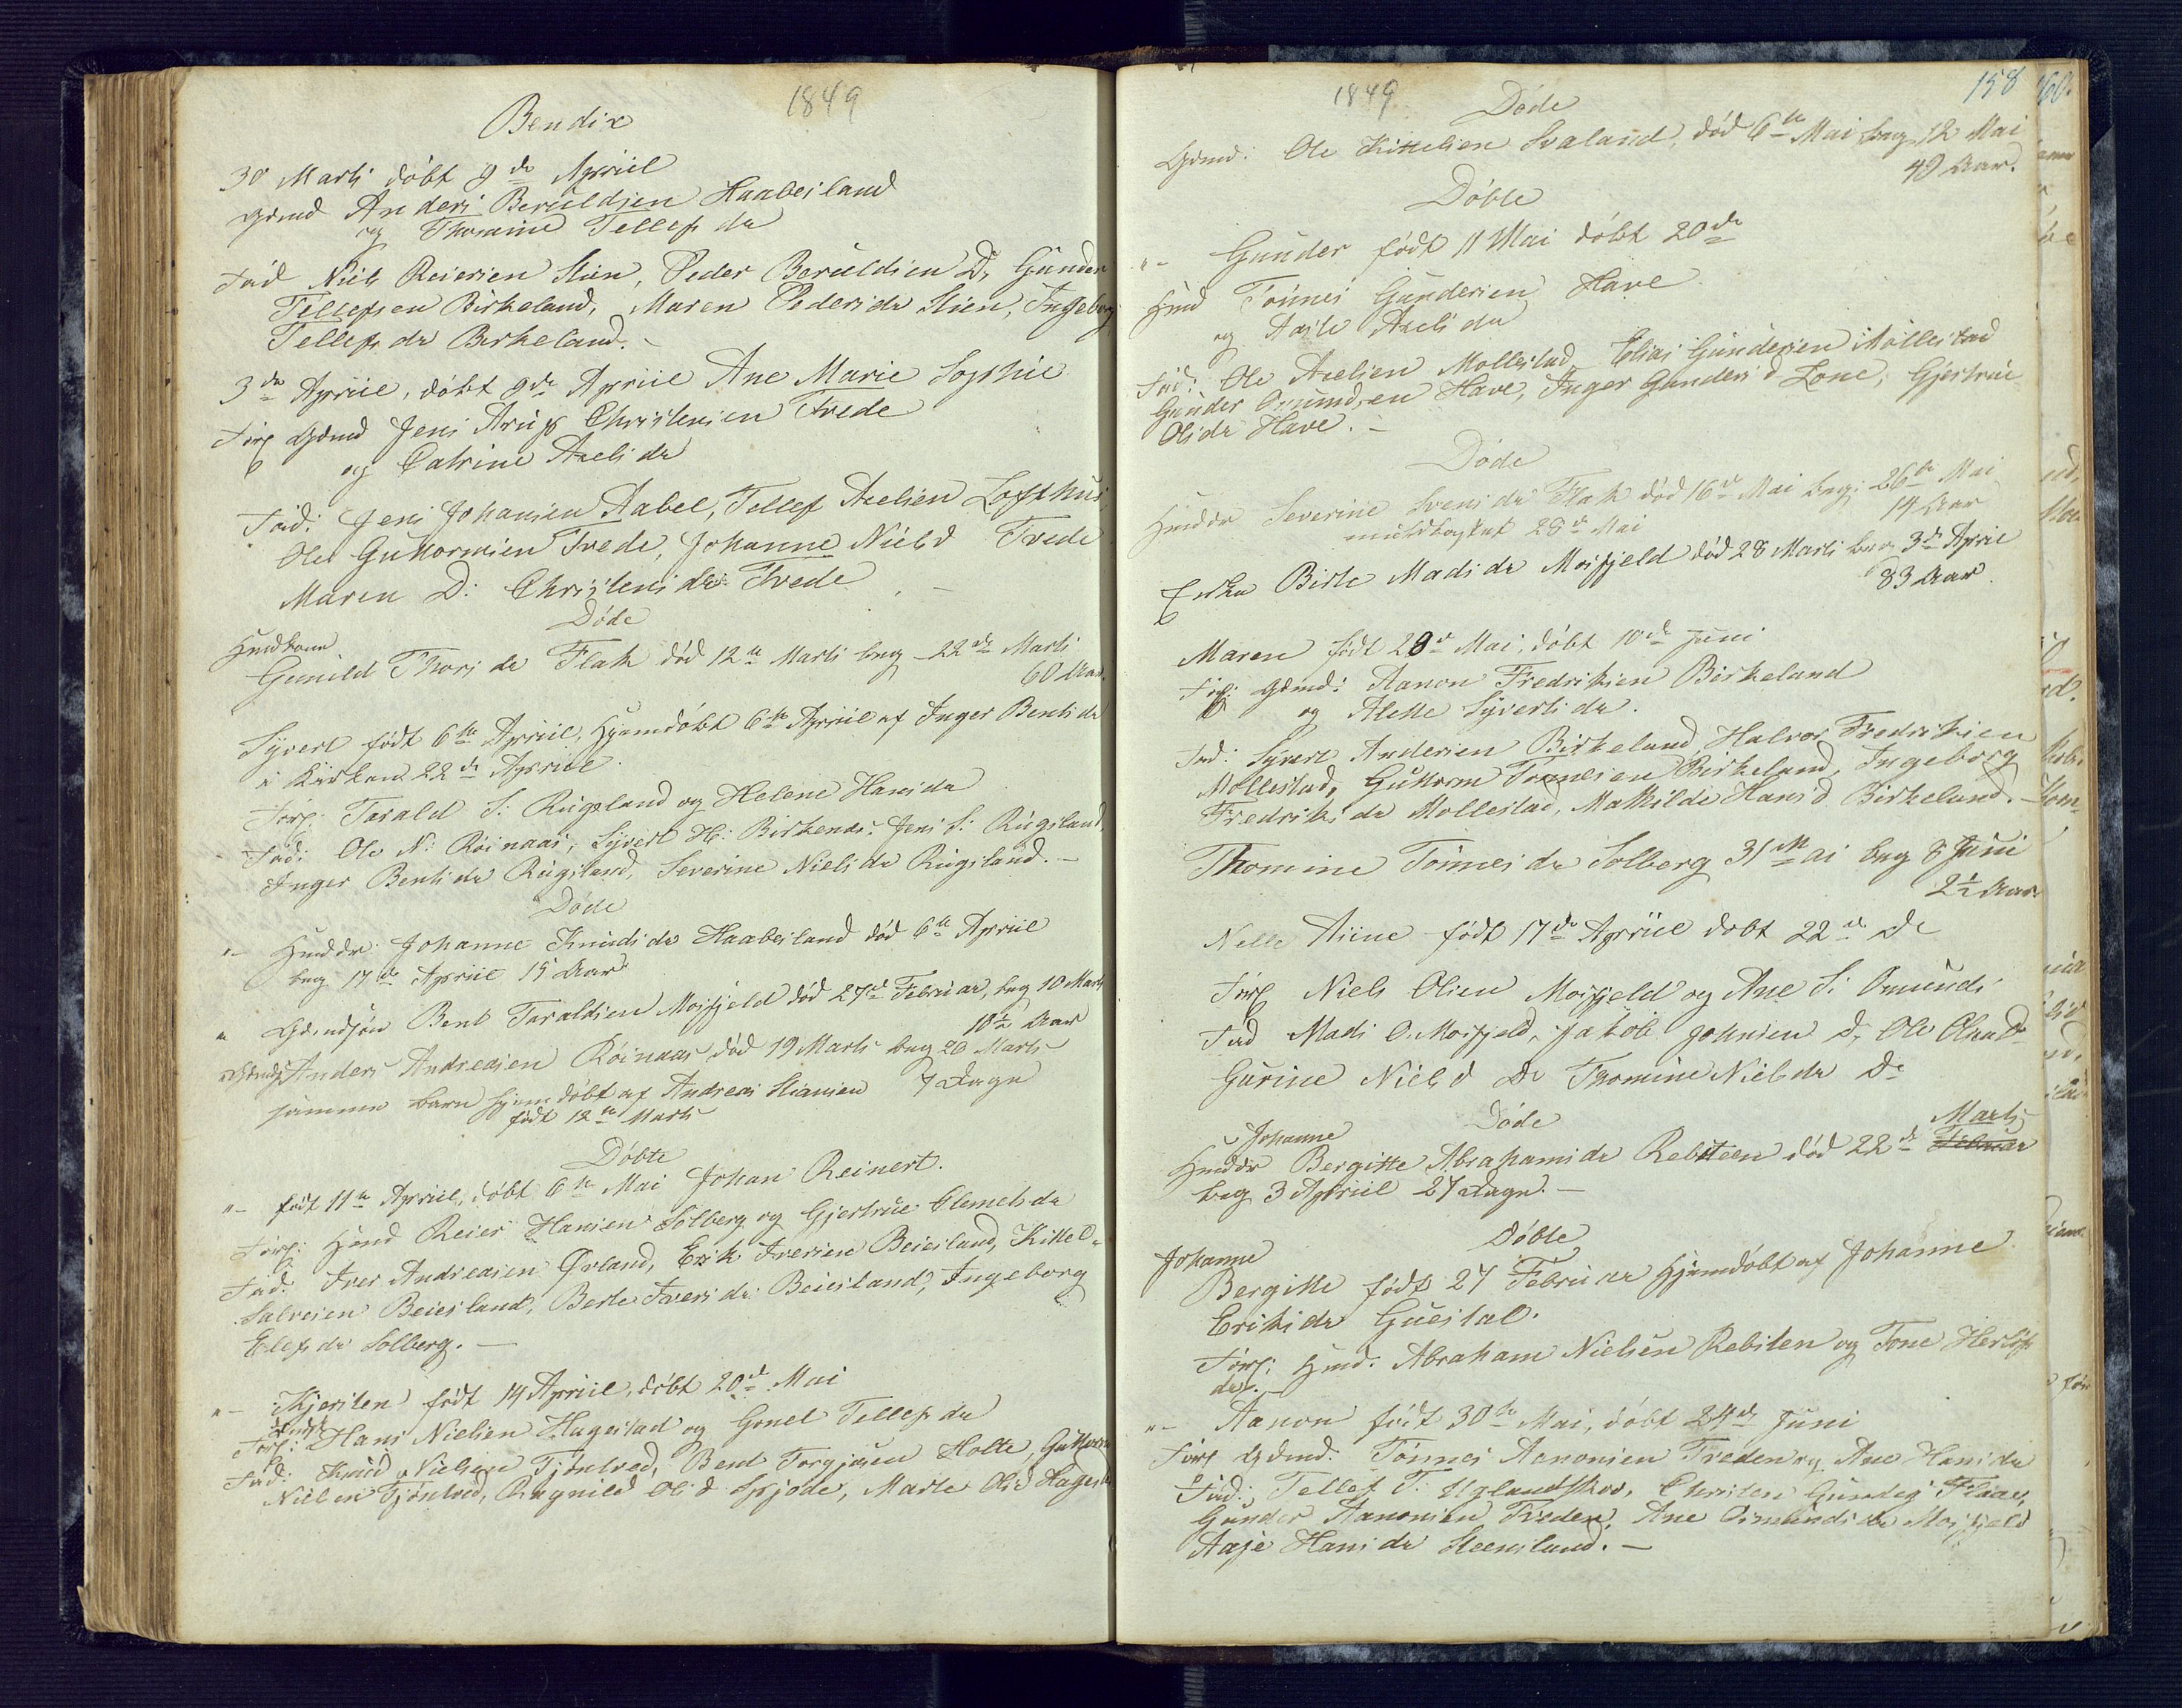 1849
Bendix
30 Marts døbt 9de Apriil
Gdmd Anders Beruldsen Haabesland
og Thomine Tellefsda
Fad Niels Reiersen Stien, Peder Beruldsen Do Gunder
Tellefsen Birkeland, Maren Pedersda Stien, Ingeborg
Tellefsda Berkeland.
3de Apriil, døbt 9de Apriil Ane Marie Sophie
For Gdmd Jens Arup Christensen Tvede
og Catrine Axelsda
Fad: Jens Johansen Aabel, Tellef Axelsen Lofthus
Ole Guttormsen Tvede, Johanne Nielsd Tvede
Maren D: Christensda Tvede
Døde
Hmdkone
Gunild Thorsda Flak død 12te Marts beg 22de Marts
60 Aar
Syvert født 6te Apriil, Hjemdøbt 6te Apriil af Inger Bentsda
i Kirken 22de Apriil
For: Tarald S: Rugsland og Helene Hansda
Fad: Ole N: Røinaas, Syvert H: Birkends: Jens S: Rugsland,
Inger Bentsda Rugsland, Severine Nielsda Rugsland.
Døde
Hmddr Johanne Knudsda Haabesland død 6te Apriil
beg 17de Apriil 15 Aar
Gdmdsøn Bent Taraldsen Mosfjeld død 27de Februar, beg 10 Marts
10½ Aar
Gdmds Anders Andreasen Røinaas død 19 Marts beg 26 Marts
samme barn hjemdøbt af Andreas Stiansen 7 Dage
født 12te Marts
Døbte
født 11te Apriil, døbt 6te Mai Johan Reinert.
For: Hmd Reier Hansen Solberg og Gjertrue Clemetsda
Fad. Iver Andreasen Ørland, Erik Iversen Beiesland, Kittel
Salvesen Beiesland, Berte Iversda Beiesland, Ingeborg
Elefsda Solberg.
Kjersten født 14 Apriil, døbt 20de Mai
For: Hans Nielsen Hagestad og Gonel Tellefsda
Fad: Knud Nielsen Tjøntved, Bent Torgjusen Holte, Guttorm
Nielsen Tjøntved, Ragnild Olsd Spjode, Marte Olsd Hagest
1849
158
Døde
Gdmd: Ole Kittelsen Svaland, død 6te Mai beg 12 Mai
49 Aar.
Døbte
Gunder født 11 Mai døbt 20de
Hmd Tønnes Gundersen Have
og Aasle Axelsda
Fad: Ole Axelsen Mollestad Elias Gundersen Mollestad
Gunder Omundsen Have, Inger Gundersd Lone, Gjertrue
Olsda Have.
Døde
Hmddr Severine Svensda Flak død 16de Mai beg: 26te Mai
14 Aar
muldkastet 28de Mai
Enke Birte Madsda Mosfjeld død 28 Marts beg 3de April
83 Aar
Maren født 28de Mai, døbt 10de Juni
For: Gdmd: Aanon Fredriksen Birkeland
og Alette Syvertsda.
Fad: Syvert Andersen Birkeland, Halvor Fredriksen
Mollestad, Guttorm Tønnesen Birkeland, Ingeborg
Fredriksda Mollestad, Mathilde Hansd Birkeland.
Thomine Tønnesda Solberg 31 Mai beg 8 Juni
2½ Aar
Nelle Aiine født 17de Apriil dobt 22de Do
For Niels Olsen Mosfjeld og Ane S: Omunds
Fad Mads O. Mosfjeld, Jakob Johnsen Do, Ole Olsen Do
Gurine Nielsd Do Thomine Nielsda Do
Døde
Johanne
Marts
Hmddr Bergitte Abrahamsda Rebsteen død 22de Februar
beg 3 Apriil 27 Dage.
Døbte
Johanne
Bergitte født 27 Februar Hjemdøbt af Johanne
Eriksda Guestal.
For: Hmd: Abraham Nielsen Rebsten og Tone Herløfs
da.
Aanon født 30te Mai, døbt 24de Juni
For Gdmd. Tønnes Aanonsen Treden og Ane Hansda
Fad: Tellef T: Uglandskov, Christen Gunders Flaae,
Gunder Aanonsen Treden, Ane Osmundsda Mosfjeld
Aase Hansda Steensland.